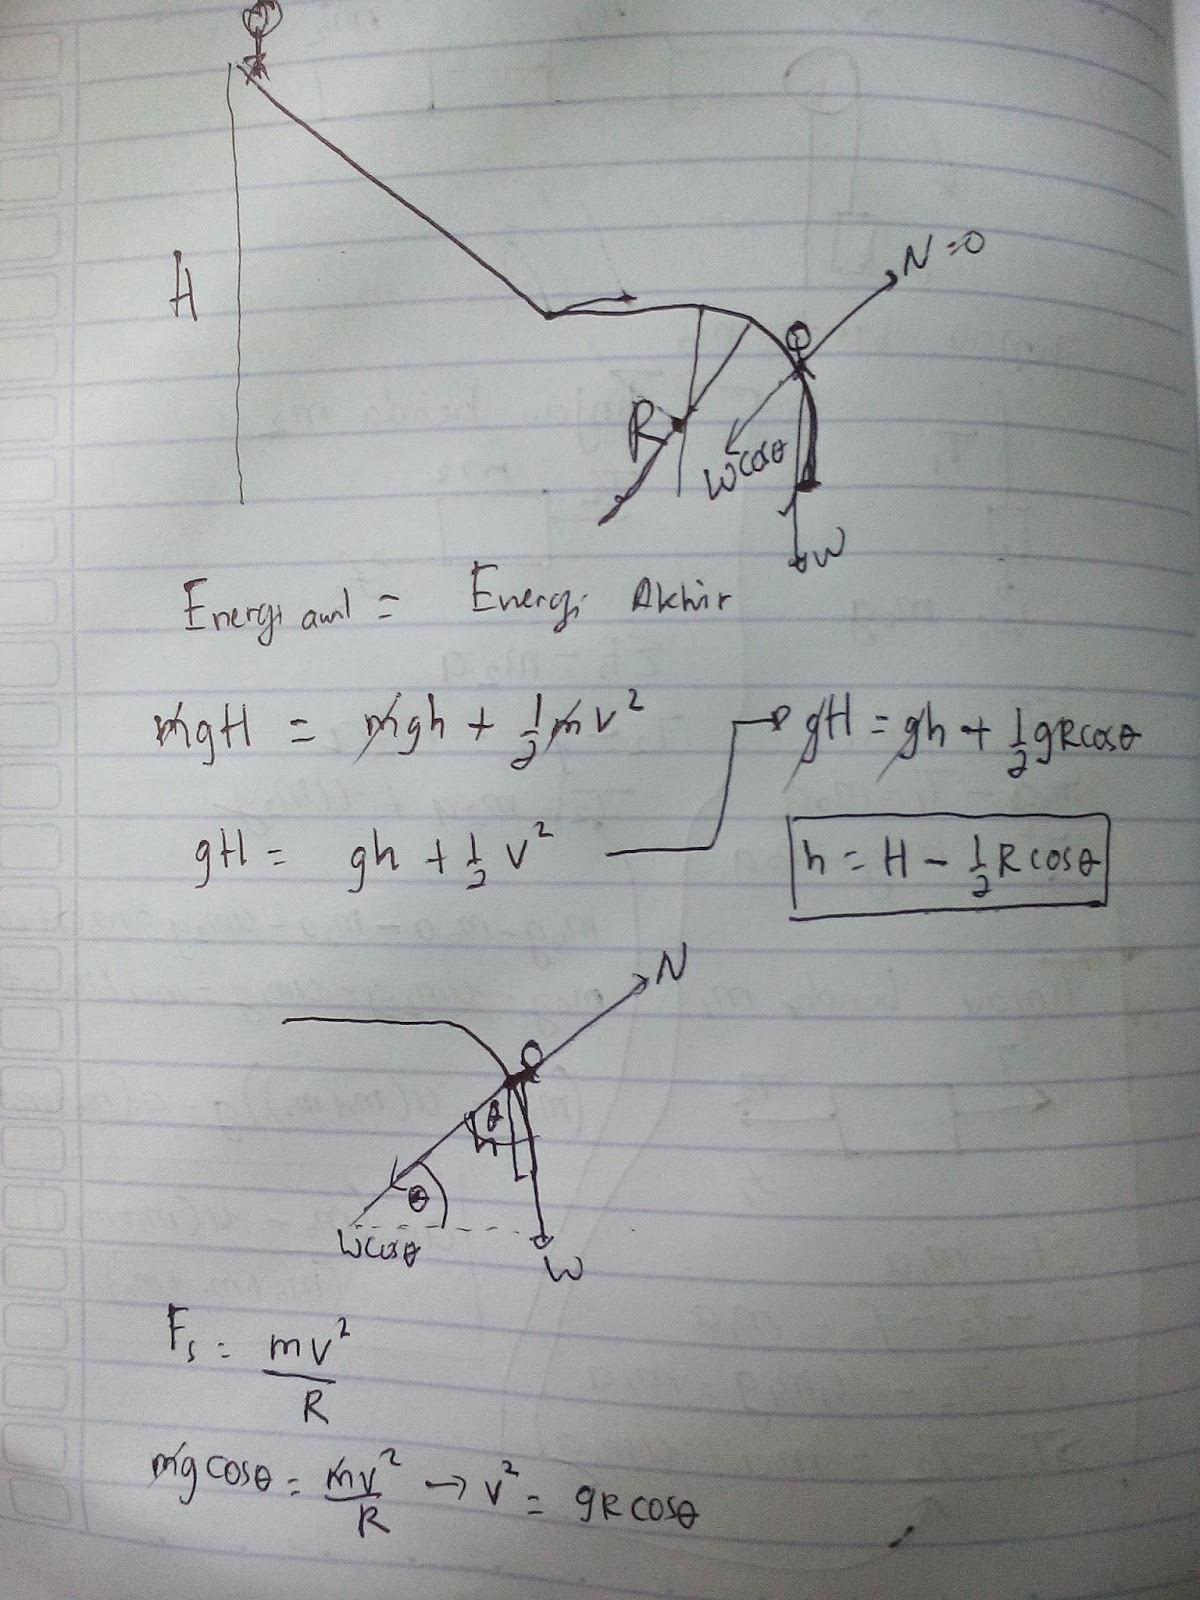 H
N=0
R
W cosθ
W
Energi awl = Energi Akhir
mgH = mgh + 1/2 mv²
gH = gh + 1/2 gRcosθ
gH = gh + 1/2 v²
h = H - 1/2 R cosθ
N
θ
θ
Wcosθ
W
Fs = mv²/R
mg cosθ = mv²/R → v² = gR cosθ